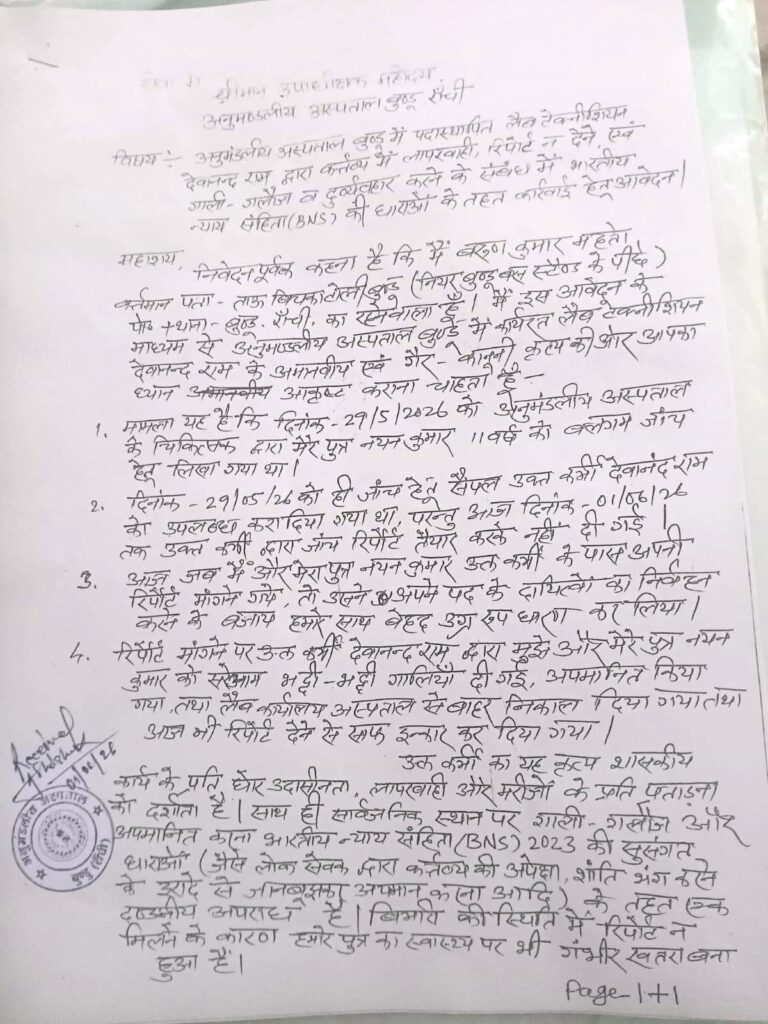 सेवा में
श्रीमान उपाधीक्षक महोदय
अनुमण्डलीय अस्पताल बुण्डू राँची
विषय :- अनुमंडलीय अस्पताल बुण्डू में पदास्थापित लैब टेक्नीशियन
देवानन्द राम द्वारा कर्त्तव्य में लापरवाही, रिपोर्ट न देने, एवं
गाली-गलौज व दुर्व्यवहार करने के संबंध में भारतीय
न्याय संहिता (BNS) की धाराओं के तहत कार्रवाई हेतु आवेदन।
महाशय,
निवेदनपूर्वक कहना है कि मैं बरुण कुमार महतो
वर्तमान पता - ताऊ बुण्डू (नियर बुण्डू बस स्टैण्ड के पीछे)
पो० + थाना - बुण्डू, राँची, का रहनेवाला हूँ। मैं इस आवेदन के
माध्यम से अनुमण्डलीय अस्पताल बुण्डू में कार्यरत लैब टेक्नीशियन
देवानन्द राम के अमानवीय एवं गैर-कानूनी कृत्य की ओर आपका
ध्यान अमानवीय आकृष्ट कराना चाहता हूँ -
1. मामला यह है कि दिनांक - 29/5/2026 को अनुमंडलीय अस्पताल
के चिकित्सक द्वारा मेरे पुत्र नयन कुमार 11 वर्ष का बलगम जाँच
हेतु लिखा गया था।
2. दिनांक - 29/05/26 को ही जाँच हेतु सैंपल उक्त कर्मी देवानंद राम
को उपलब्ध करा दिया गया था, परन्तु आज दिनांक - 01/06/26
तक उक्त कर्मी द्वारा जाँच रिपोर्ट तैयार करके नहीं दी गई।
3. आज जब मैं और मेरा पुत्र नयन कुमार उक्त कर्मी के पास अपनी
रिपोर्ट मांगने गये, तो उसने अपने पद के दायित्वों का निर्वहन
करने के बजाय हमारे साथ बेहद उग्र रूप धारण कर लिया।
4. रिपोर्ट मांगने पर उक्त कर्मी देवानन्द राम द्वारा मुझे और मेरे पुत्र नयन
कुमार को सरेआम भद्दी-भद्दी गालियाँ दी गई, अपमानित किया
गया, तथा लैब कार्यालय अस्पताल से बाहर निकाल दिया गया तथा
आज भी रिपोर्ट देने से साफ इन्कार कर दिया गया।
उक्त कर्मी का यह कृत्य शासकीय
कार्य के प्रति घोर उदासीनता, लापरवाही और मरीजों के प्रति प्रताड़ना
को दर्शाता है। साथ ही सार्वजनिक स्थान पर गाली-गलौज और
अपमानित करना भारतीय न्याय संहिता (BNS) 2023 की सुसंगत
धाराओं (जैसे लोक सेवक द्वारा कर्तव्य की अपेक्षा, शांति भंग करने
के इरादे से जानबूझकर अपमान करना आदि) के तहत एक
दण्डनीय अपराध है। बिमारी की स्थिति में रिपोर्ट न
मिलने के कारण हमारे पुत्र का स्वास्थ्य पर भी गंभीर खतरा बना
हुआ है।
Page-1+1
Received
01/06/26
अनुमंडलीय अस्पताल
बुण्डू (राँची)